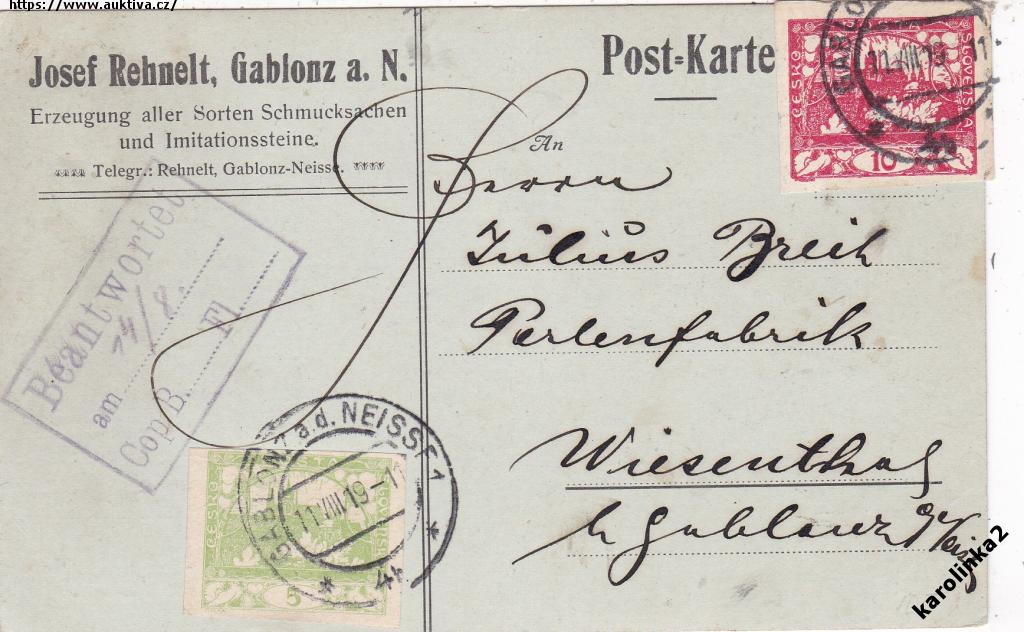 https://www.auktiva.cz/
Josef Rehnelt, Gablonz a. N.
Erzeugung aller Sorten Schmucksachen
und Imitationssteine.
Telegr.: Rehnelt, Gablonz-Neisse.
Post-Karte
An
Herrn
Julius Breit
Perlenfabrik
Wiesenthal
b Gablonz a/Neisse
Beantwortet
am 14/8.
Cop. B. Fl.
ČESKO
SLOVENSKÁ
10
11.VIII.19
GABLONZ a.d. NEISSE 1
11.VIII.19-1
* 4f *
ČESKO
5
karolinka2